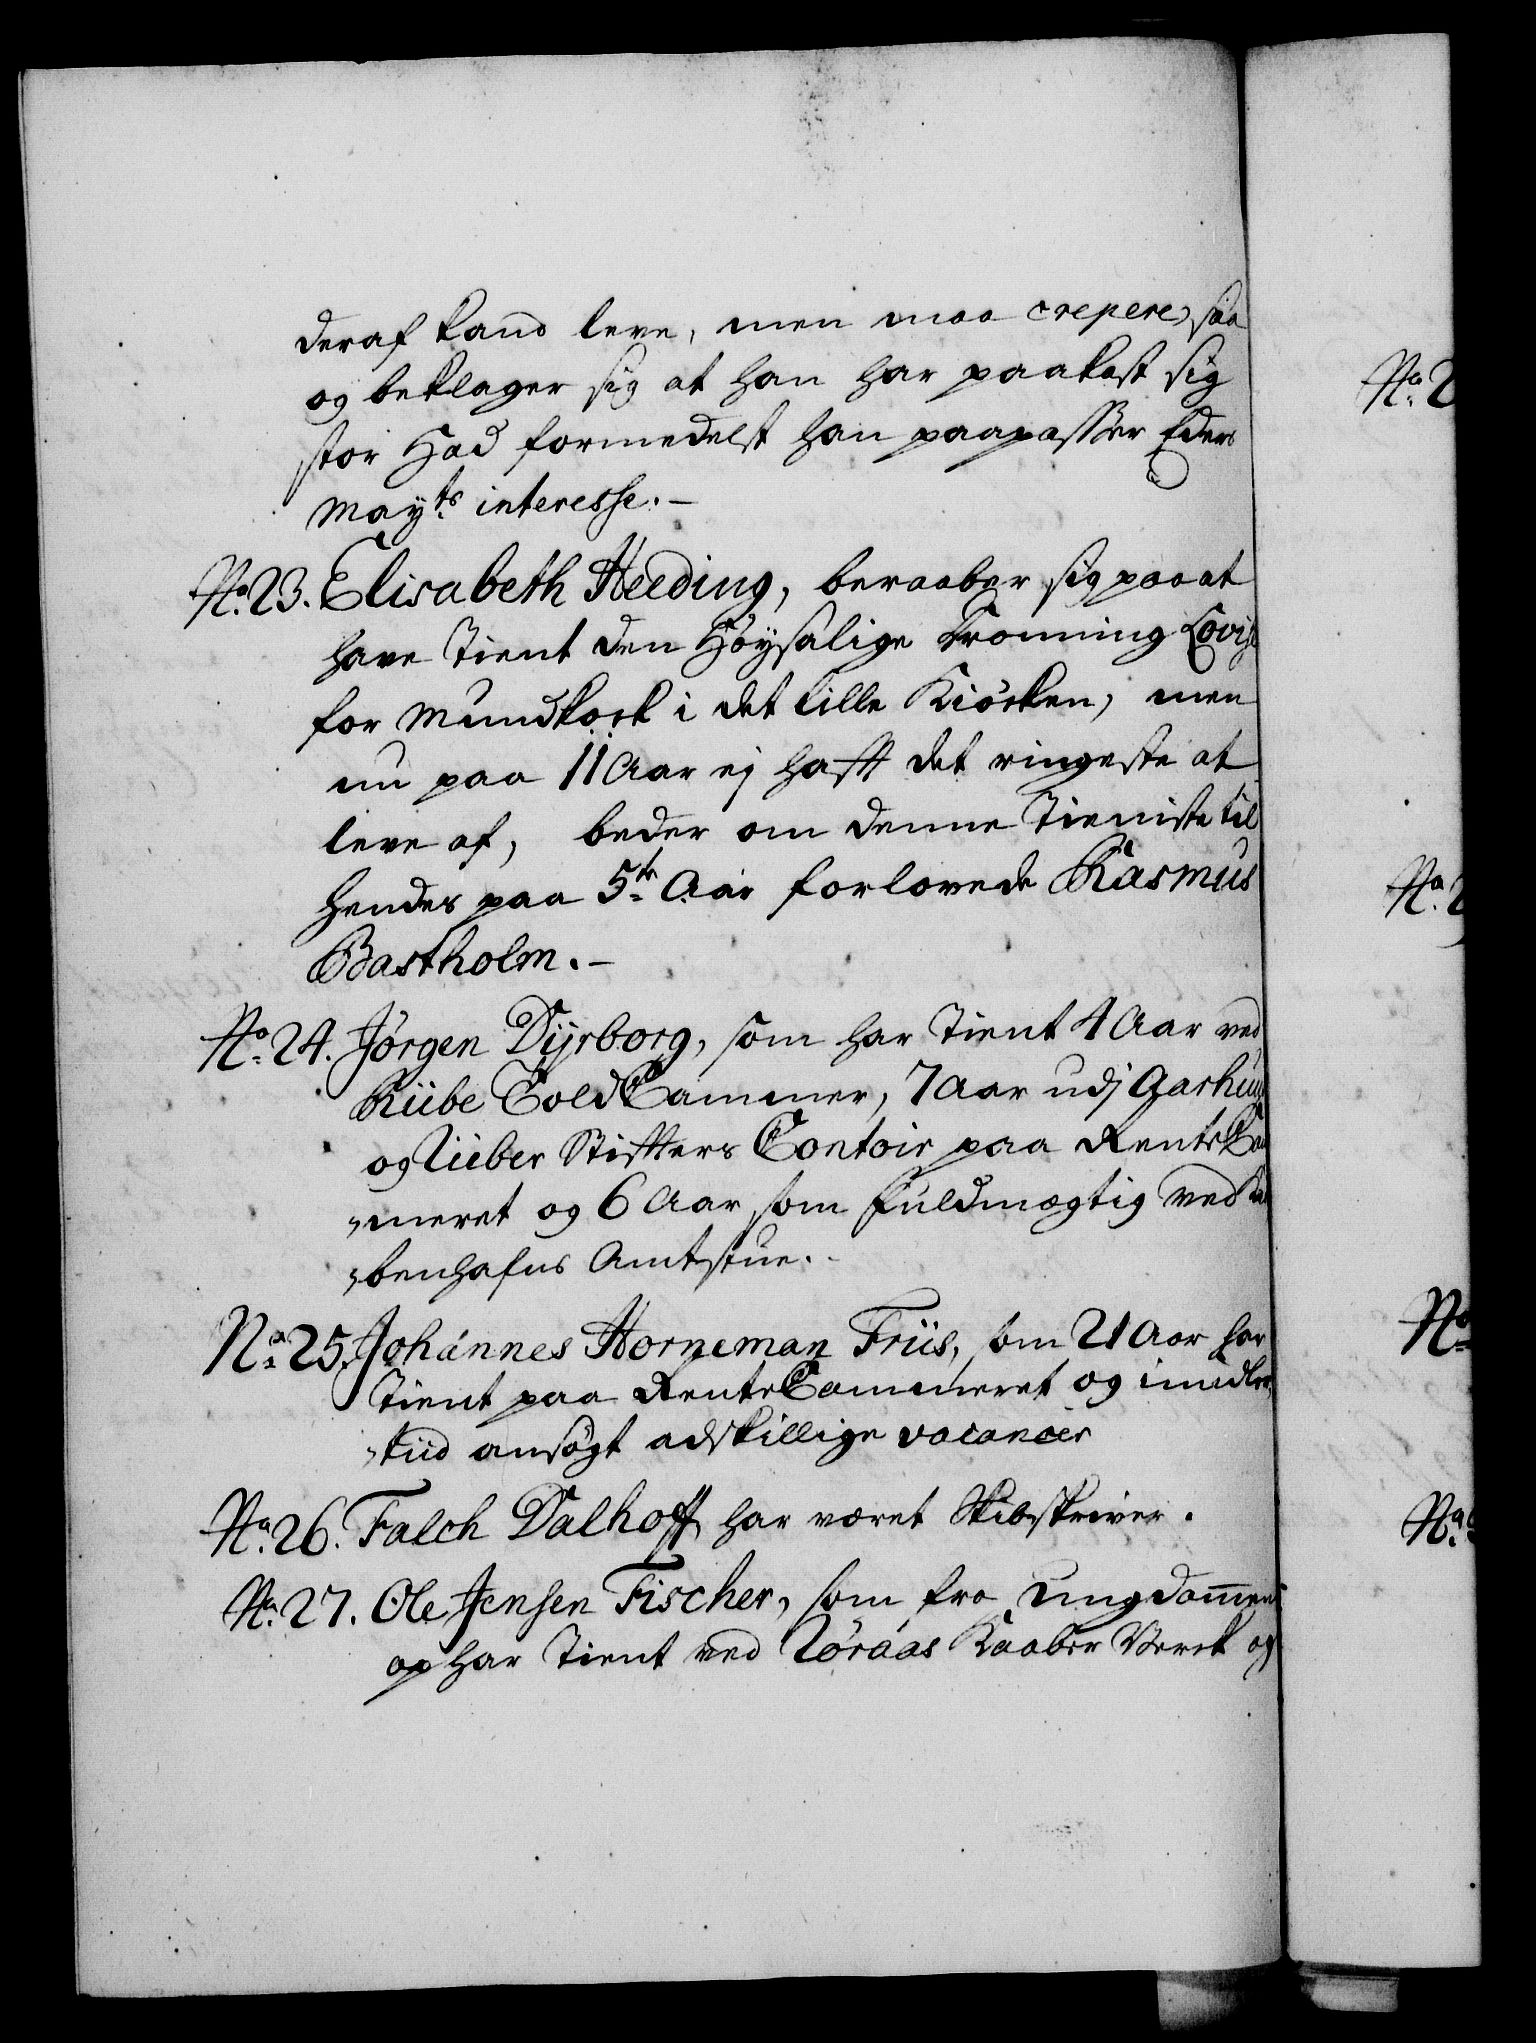 deraf kand leve, men maa crepere, saa
og beklager sig at han har paakast sig
stor Had formedelst han paapasser Eders
Mayts interesse.-
No. 23. Elisabeth Heeding, beraaber sig paa at
have tient den Höysalige Dronning Lovise
for Mundkock i det lille Kiöcken, men
nu paa 11 Aar ej hafft det ringeste at
leve af, beder om denne Tieniste til
hendes paa 5te Aar forlovede Rasmus
Bastholm.-
No. 24. Jörgen Dyrborg, som har tient 4 Aar ved
Riibe Told Cammer, 7 Aar udj Aarhuus
og Riiber Stifters Contoir paa Rente Cam
meret og 6 Aar som fuldmægtig ved Kiö
benhafns Amtstue.
No. 25. Johannes Horneman Friis, som 21 Aar har
tient paa Rente Cammeret og imidler
tiid ansögt adskillige vacancer
No. 26. Falch Dalhoff har været Skibskriver.
No. 27. Ole Jensen Fischer, som fra Ungdommen
op har tient ved Röraas Kaaber Werck og
No. 2
No. 2
No.
No.